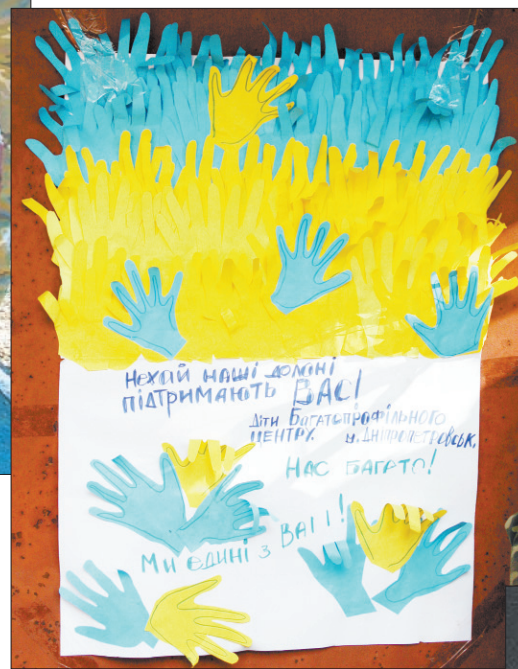 Нехай наші долоні
підтримають ВАС!
Діти Багатопрофільного
центру. м. Дніпропетровськ.
Нас багато!
Ми єдині з ВАМИ!